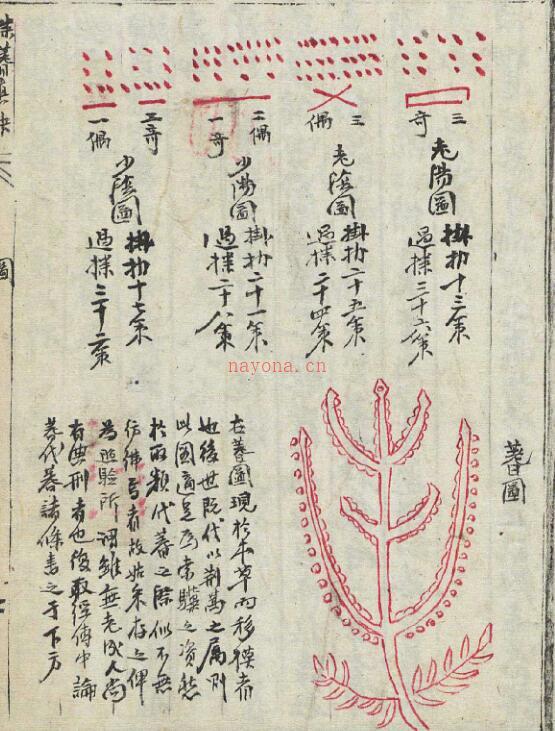 三奇
老陽圖
掛扐十三策
過揲三十六策
三偶
老陰圖
掛扐二十五策
過揲二十四策
二偶
一奇
少陽圖
掛扐二十一策
過揲二十八策
二奇
一偶
少陰圖
掛扐十七策
過揲三十二策
蓍圖
右蓍圖現於本草而移模者
也後世既代以荊萵之属則
此圖適足為索驥之資然
於取類代蓍之際似不無
彷彿焉者故姑朱存之俾
為照驗所謂雖無老成人尚
有典刑者也後取經傳中論
蓍代蓍諸條書之于下方
圖
nayona.cn